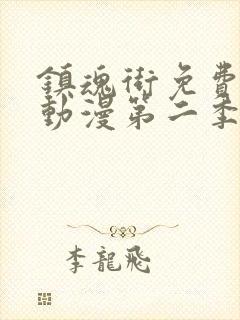 鎮魂街免費
動漫第二季
李龍飛